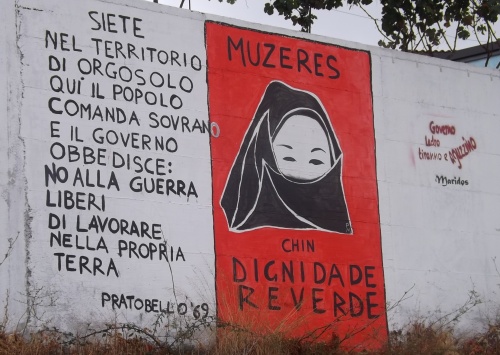 SIETE
NEL TERRITORIO
DI ORGOSOLO
QUI IL POPOLO
COMANDA SOVRANO
E IL GOVERNO
OBBEDISCE:
NO ALLA GUERRA
LIBERI
DI LAVORARE
NELLA PROPRIA
TERRA
PRATOBELLO '69
MUZERES
CHIN
DIGNIDADE
REVERDE
Governo
ladro
tiranno e aguzzino
Maridos